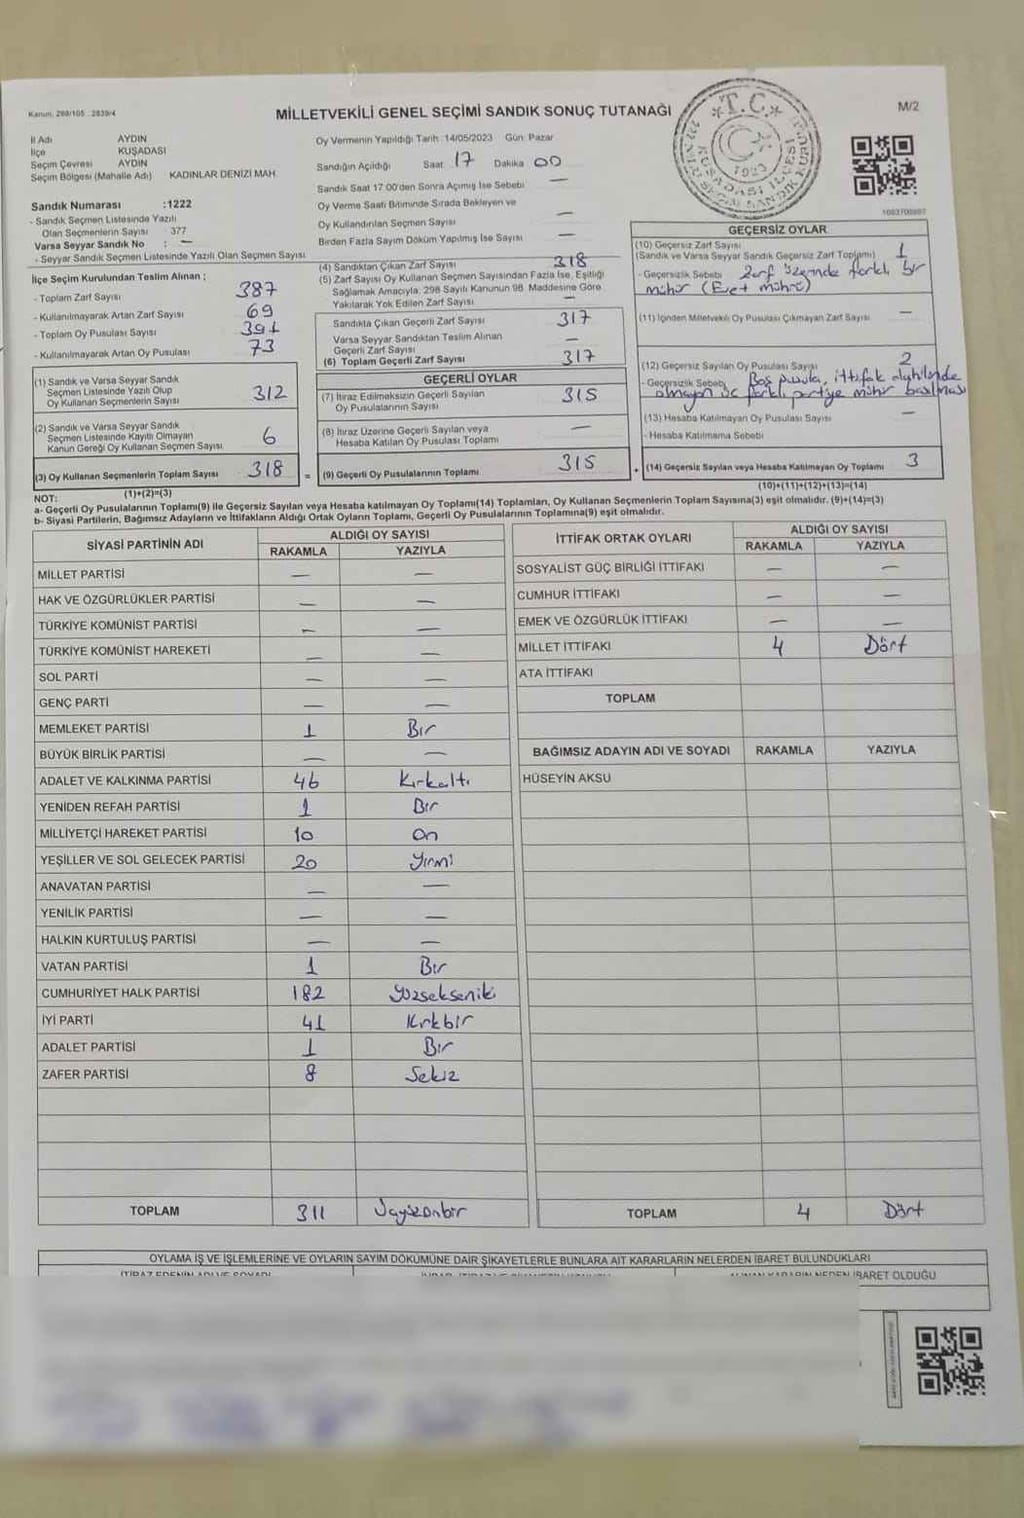 Kanun: 298/105 : 2839/4
MİLLETVEKİLİ GENEL SEÇİMİ SANDIK SONUÇ TUTANAĞI
M/2
İl Adı AYDIN
İlçe KUŞADASI
Seçim Çevresi AYDIN
Seçim Bölgesi (Mahalle Adı) KADINLAR DENİZİ MAH.
Sandık Numarası :1222
- Sandık Seçmen Listesinde Yazılı
Olan Seçmenlerin Sayısı 377
Varsa Seyyar Sandık No : —
- Seyyar Sandık Seçmen Listesinde Yazılı Olan Seçmen Sayısı
Oy Vermenin Yapıldığı Tarih :14/05/2023 Gün: Pazar
Sandığın Açıldığı Saat 17 Dakika 00
Sandık Saat 17:00'den Sonra Açımış İse Sebebi —
Oy Verme Saati Bitiminde Sırada Bekleyen ve
Oy Kullandırılan Seçmen Sayısı —
Birden Fazla Sayım Döküm Yapılmış İse Sayısı —
T.C.
KUŞADASI İLÇESİ
1923
1003700897
İlçe Seçim Kurulundan Teslim Alınan ;
- Toplam Zarf Sayısı 387
- Kullanılmayarak Artan Zarf Sayısı 69
- Toplam Oy Pusulası Sayısı 391
- Kullanılmayarak Artan Oy Pusulası 73
(1) Sandık ve Varsa Seyyar Sandık
Seçmen Listesinde Yazılı Olup
Oy Kullanan Seçmenlerin Sayısı 312
(2) Sandık ve Varsa Seyyar Sandık
Seçmen Listesinde Kayıtlı Olmayan
Kanun Gereği Oy Kullanan Seçmen Sayısı 6
(3) Oy Kullanan Seçmenlerin Toplam Sayısı 318 =
(1)+(2)=(3)
(4) Sandıktan Çıkan Zarf Sayısı 318
(5) Zarf Sayısı Oy Kullanan Seçmen Sayısından Fazla İse, Eşitliği
Sağlamak Amacıyla, 298 Sayılı Kanunun 98. Maddesine Göre
Yakılarak Yok Edilen Zarf Sayısı —
Sandıkta Çıkan Geçerli Zarf Sayısı 317
Varsa Seyyar Sandıktan Teslim Alınan
Geçerli Zarf Sayısı —
(6) Toplam Geçerli Zarf Sayısı 317
GEÇERLİ OYLAR
(7) İtiraz Edilmeksizin Geçerli Sayılan
Oy Pusulalarının Sayısı 315
(8) İtiraz Üzerine Geçerli Sayılan veya
Hesaba Katılan Oy Pusulası Toplamı —
(9) Geçerli Oy Pusulalarının Toplamı 315
GEÇERSİZ OYLAR
(10) Geçersiz Zarf Sayısı
(Sandık ve Varsa Seyyar Sandık Geçersiz Zarf Toplamı) 1
- Geçersizlik Sebebi Zarf üzerinde farklı bir
mühür (Evet mührü)
(11) İçinden Milletvekili Oy Pusulası Çıkmayan Zarf Sayısı —
(12) Geçersiz Sayılan Oy Pusulası Sayısı 2
- Geçersizlik Sebebi Boş pusula, ittifak dahilinde
olmayan üç farklı partiye mühür basılması
(13) Hesaba Katılmayan Oy Pusulası Sayısı —
- Hesaba Katılmama Sebebi
(14) Geçersiz Sayılan veya Hesaba Katılmayan Oy Toplamı 3
(10)+(11)+(12)+(13)=(14)
NOT:
a- Geçerli Oy Pusulalarının Toplamı(9) ile Geçersiz Sayılan veya Hesaba katılmayan Oy Toplamı(14) Toplamları, Oy Kullanan Seçmenlerin Toplam Sayısına(3) eşit olmalıdır. (9)+(14)=(3)
b- Siyasi Partilerin, Bağımsız Adayların ve İttifakların Aldığı Ortak Oyların Toplamı, Geçerli Oy Pusulalarının Toplamına(9) eşit olmalıdır.
SİYASİ PARTİNİN ADI ALDIĞI OY SAYISI
RAKAMLA YAZIYLA
MİLLET PARTİSİ — —
HAK VE ÖZGÜRLÜKLER PARTİSİ — —
TÜRKİYE KOMÜNİST PARTİSİ — —
TÜRKİYE KOMÜNİST HAREKETİ — —
SOL PARTİ — —
GENÇ PARTİ — —
MEMLEKET PARTİSİ 1 Bir
BÜYÜK BİRLİK PARTİSİ — —
ADALET VE KALKINMA PARTİSİ 46 Kırkaltı
YENİDEN REFAH PARTİSİ 1 Bir
MİLLİYETÇİ HAREKET PARTİSİ 10 On
YEŞİLLER VE SOL GELECEK PARTİSİ 20 Yirmi
ANAVATAN PARTİSİ — —
YENİLİK PARTİSİ — —
HALKIN KURTULUŞ PARTİSİ — —
VATAN PARTİSİ 1 Bir
CUMHURİYET HALK PARTİSİ 182 Yüzsekseniki
İYİ PARTİ 41 Kırkbir
ADALET PARTİSİ 1 Bir
ZAFER PARTİSİ 8 Sekiz
TOPLAM 311 Üçyüzonbir
İTTİFAK ORTAK OYLARI ALDIĞI OY SAYISI
RAKAMLA YAZIYLA
SOSYALİST GÜÇ BİRLİĞİ İTTİFAKI — —
CUMHUR İTTİFAKI — —
EMEK VE ÖZGÜRLÜK İTTİFAKI — —
MİLLET İTTİFAKI 4 Dört
ATA İTTİFAKI
TOPLAM
BAĞIMSIZ ADAYIN ADI VE SOYADI RAKAMLA YAZIYLA
HÜSEYİN AKSU
TOPLAM 4 Dört
OYLAMA İŞ VE İŞLEMLERİNE VE OYLARIN SAYIM DÖKÜMÜNE DAİR ŞİKAYETLERLE BUNLARA AİT KARARLARIN NELERDEN İBARET BULUNDUKLARI
İTİRAZ EDENİN ADI VE SOYADI
ALINAN KARARIN NEDEN İBARET OLDUĞU